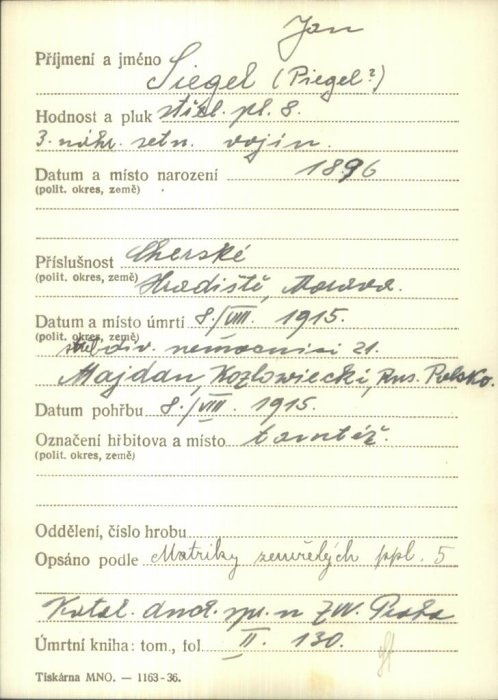 Jan
Příjmení a jméno Siegel (Piegel?)
Hodnost a pluk střel. pl. 8.
3. náhr. setn. vojín.
Datum a místo narození 1896
(polit. okres, země)
Příslušnost Uherské
(polit. okres, země) Hradiště, Morava.
Datum a místo úmrtí 8./VIII. 1915.
(polit. okres, země)
div. nemocnici 21.
Majdan, Kozlowiecki, Rus. Polsko.
Datum pohřbu 8./VIII. 1915.
Označení hřbitova a místo tamtéž.
(polit. okres, země)
Oddělení, číslo hrobu
Opsáno podle Matriky zemřelých ppl. 5
Katol. duch. spr. u ZVV. Praha
Úmrtní kniha: tom., fol II. 130.
Tiskárna MNO. — 1163-36.